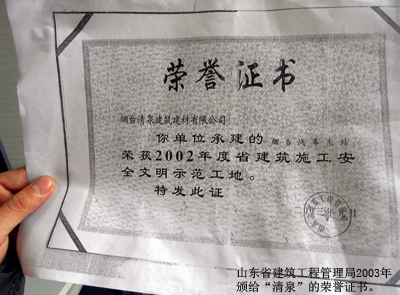 荣誉证书
烟台清泉建筑建材有限公司
你单位承建的 烟台汽车东站
荣获2002年度省建筑施工安
全文明示范工地。
特发此证
山东省建筑工程管理局2003年
颁给“清泉”的荣誉证书。